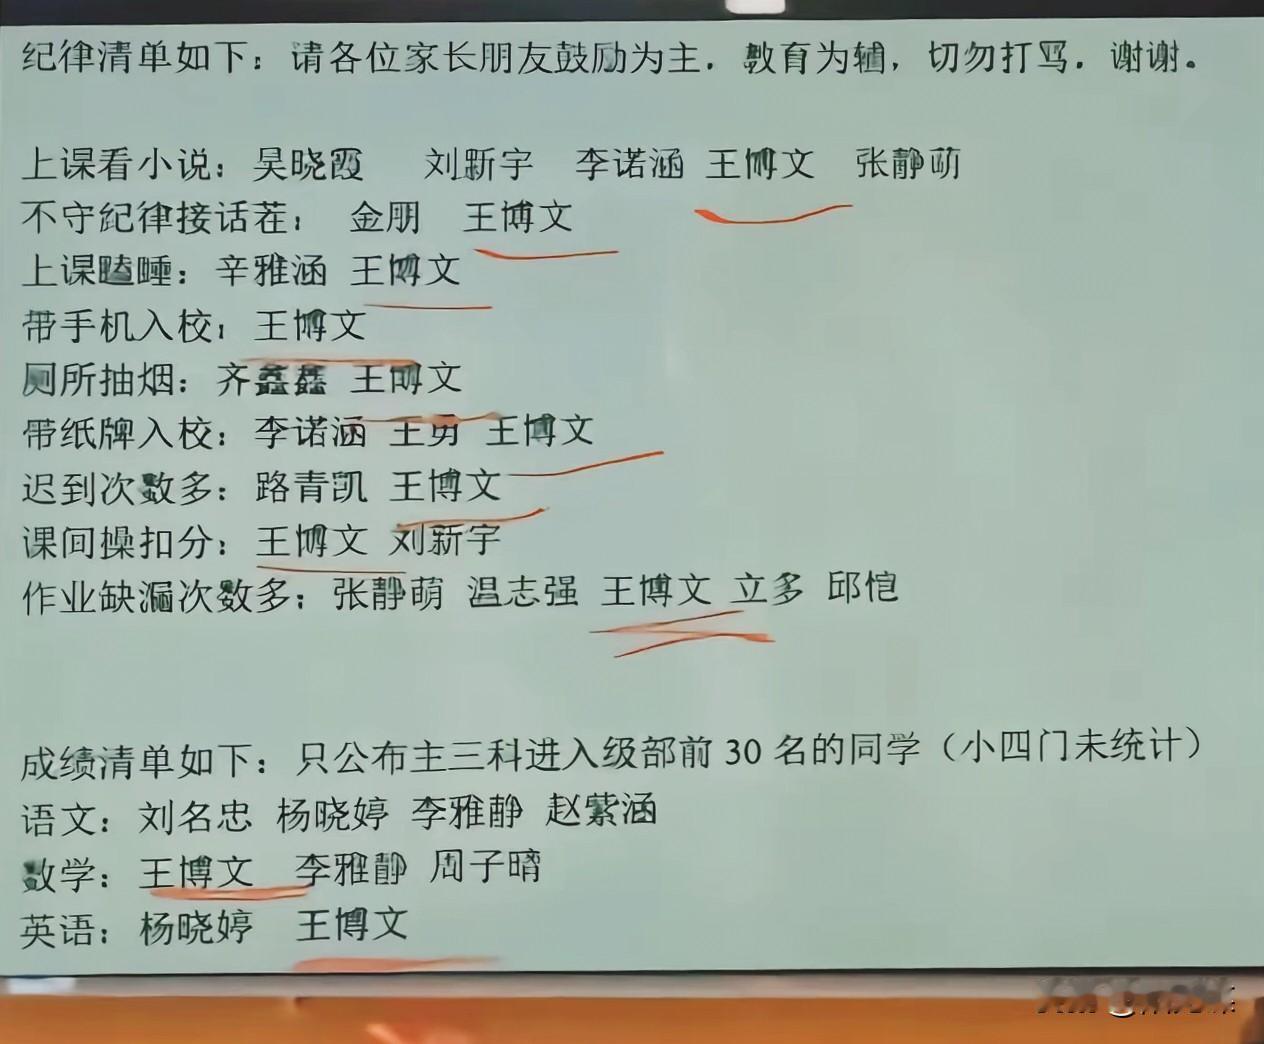 纪律清单如下：请各位家长朋友鼓励为主．教育为辅，切勿打骂．谢谢。
上课看小说：吴晓霞 刘新宇 李诺涵 王博文 张静萌
不守纪律接话茬： 金朋 王博文
上课瞌睡：辛雅涵 王博文
带手机入校：王博文
厕所抽烟：齐鑫鑫 王博文
带纸牌入校：李诺涵 王勇 王博文
迟到次数多：路青凯 王博文
课间操扣分：王博文 刘新宇
作业缺漏次数多：张静萌 温志强 王博文 立多 邱恺
成绩清单如下：只公布主三科进入级部前 30 名的同学（小四门未统计）
语文：刘名忠 杨晓婷 李雅静 赵紫涵
数学：王博文 李雅静 周子晴
英语：杨晓婷 王博文